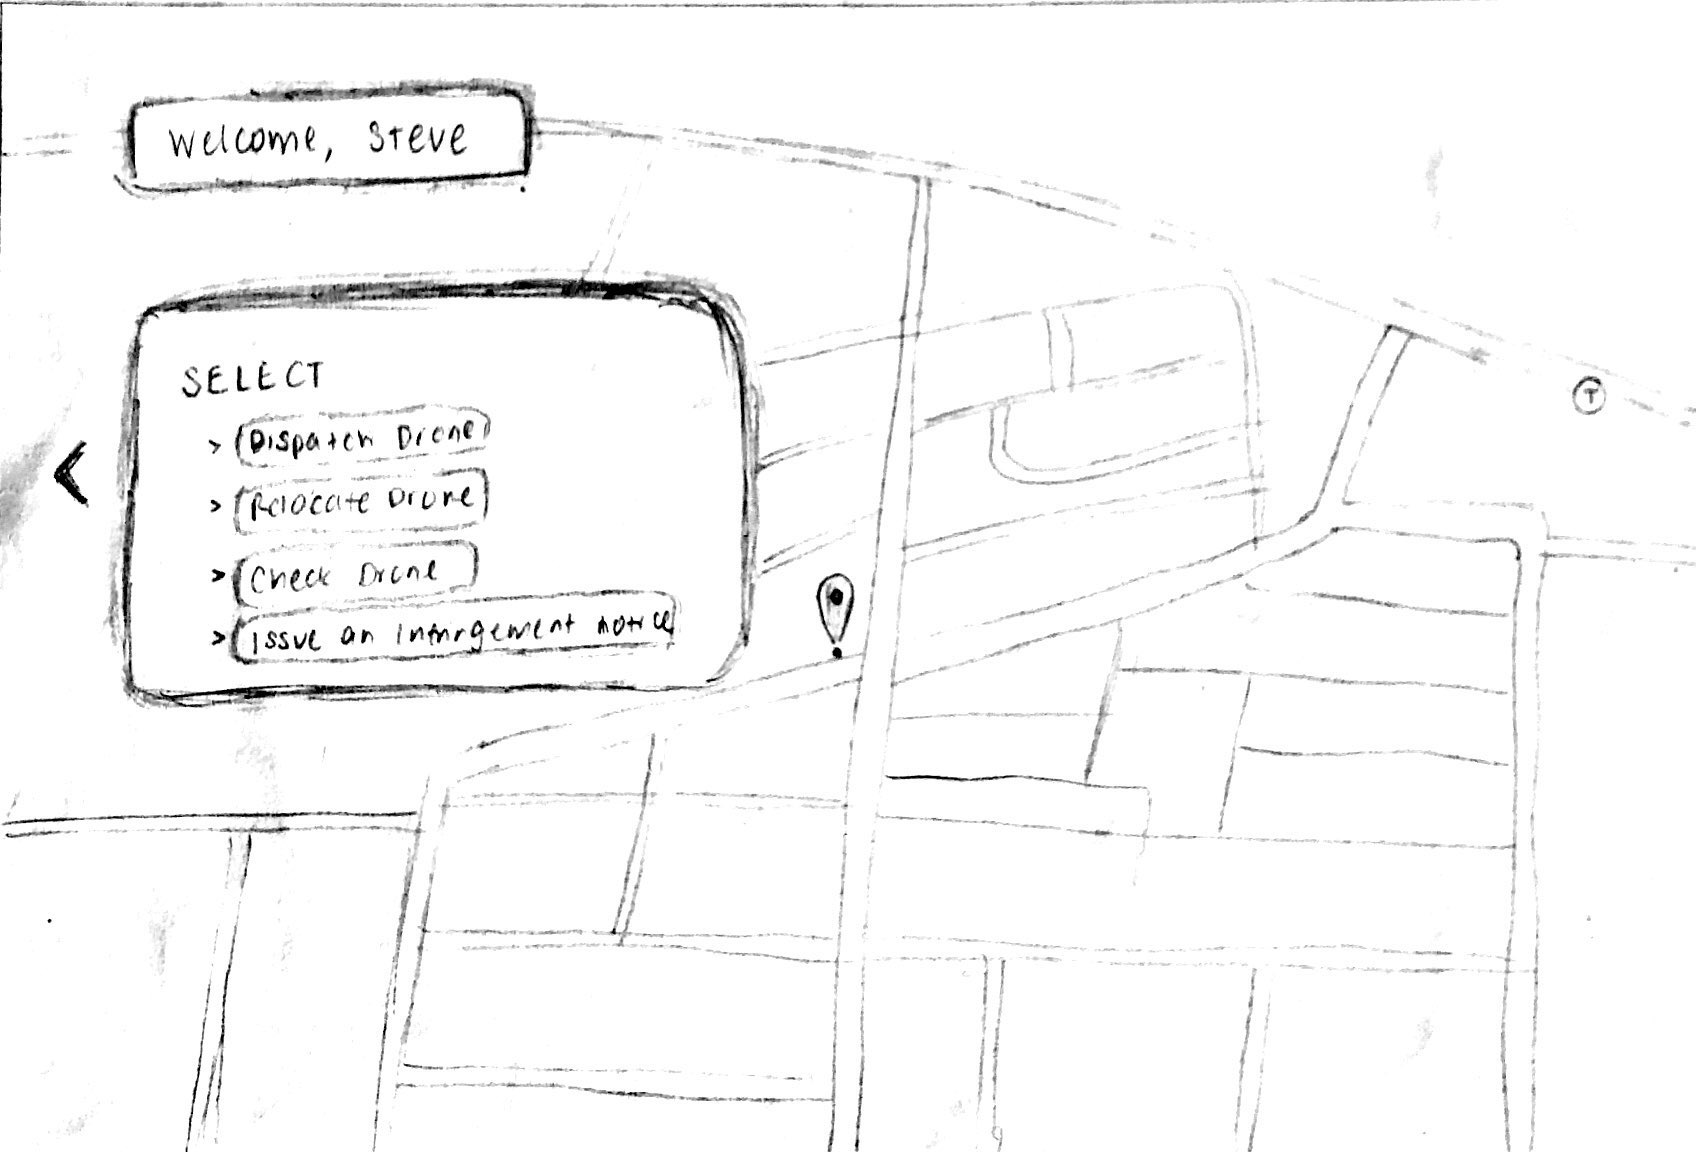 Welcome, Steve
SELECT
> Dispatch Drone
> Relocate Drone
> Check Drone
> Issue an infringement notice
T